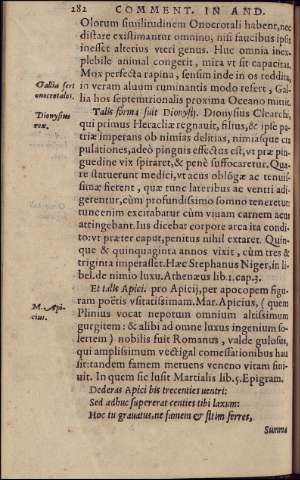 282 COMMENT. IN AND.
Olorum similitudinem Onocrotali habent, nec
distare existimantur omnino, nisi faucibus ipsis
inesset alterius uteri genus. Huc omnia inex-
plebile animal congerit, mira vt sit capacitas.
Mox perfecta rapina, sensim inde in os reddita,
Gallia fert
onocrotalos.
in veram aluum ruminantis modo refert, Gal-
lia hos septemtrionalis proxima Oceano mittit.
Dionysius
rex.
Talis forma fuit Dionysij. Dionysius Clearchi,
qui primus Heracliæ regnauit, filius, & ipse pa-
triæ imperans ob nimias delitias, nimiasque cu
pulationes, adeò pinguis effectus est, vt præ pin-
guedine vix spiraret, & penè suffocaretur. Qua-
re statuerunt medici, vt acus oblógæ ac tenuis-
simæ fierent, quæ tunc lateribus ac ventri adi-
gerentur, cùm profundissimo somno teneretur:
tunc enim excitabatur cùm viuam carnem acus
attingebant. Ius dicebat corpore arca ita condi-
to: vt præter caput, penitus nihil extaret. Quin-
que & quinquaginta annos vixit, cùm tres &
triginta imperasset. Hæc Stephanus Niger, in li-
bel. de nimio luxu. Athenæus lib. 1. cap. 3.
Et talis Apici. pro Apicij, per apocopem figu-
ram poëtis vsitatissimam. Mar. Apicius, (quem
M. Api-
cius.
Plinius vocat nepotum omnium altissimum
gurgitem: & alibi ad omne luxus ingenium so-
lertem) nobilis fuit Romanus, valde gulosus,
qui amplissimum vectigal comessationibus hau
sit: tandem famem metuens veneno vitam fini-
uit. In quem sic lusit Martialis lib. 5. Epigram.
Dederas Apici bis trecenties ventri:
Sed adhuc supererat centies tibi laxum:
Hoc tu grauatus, ne famem & sitim ferres,
Summa